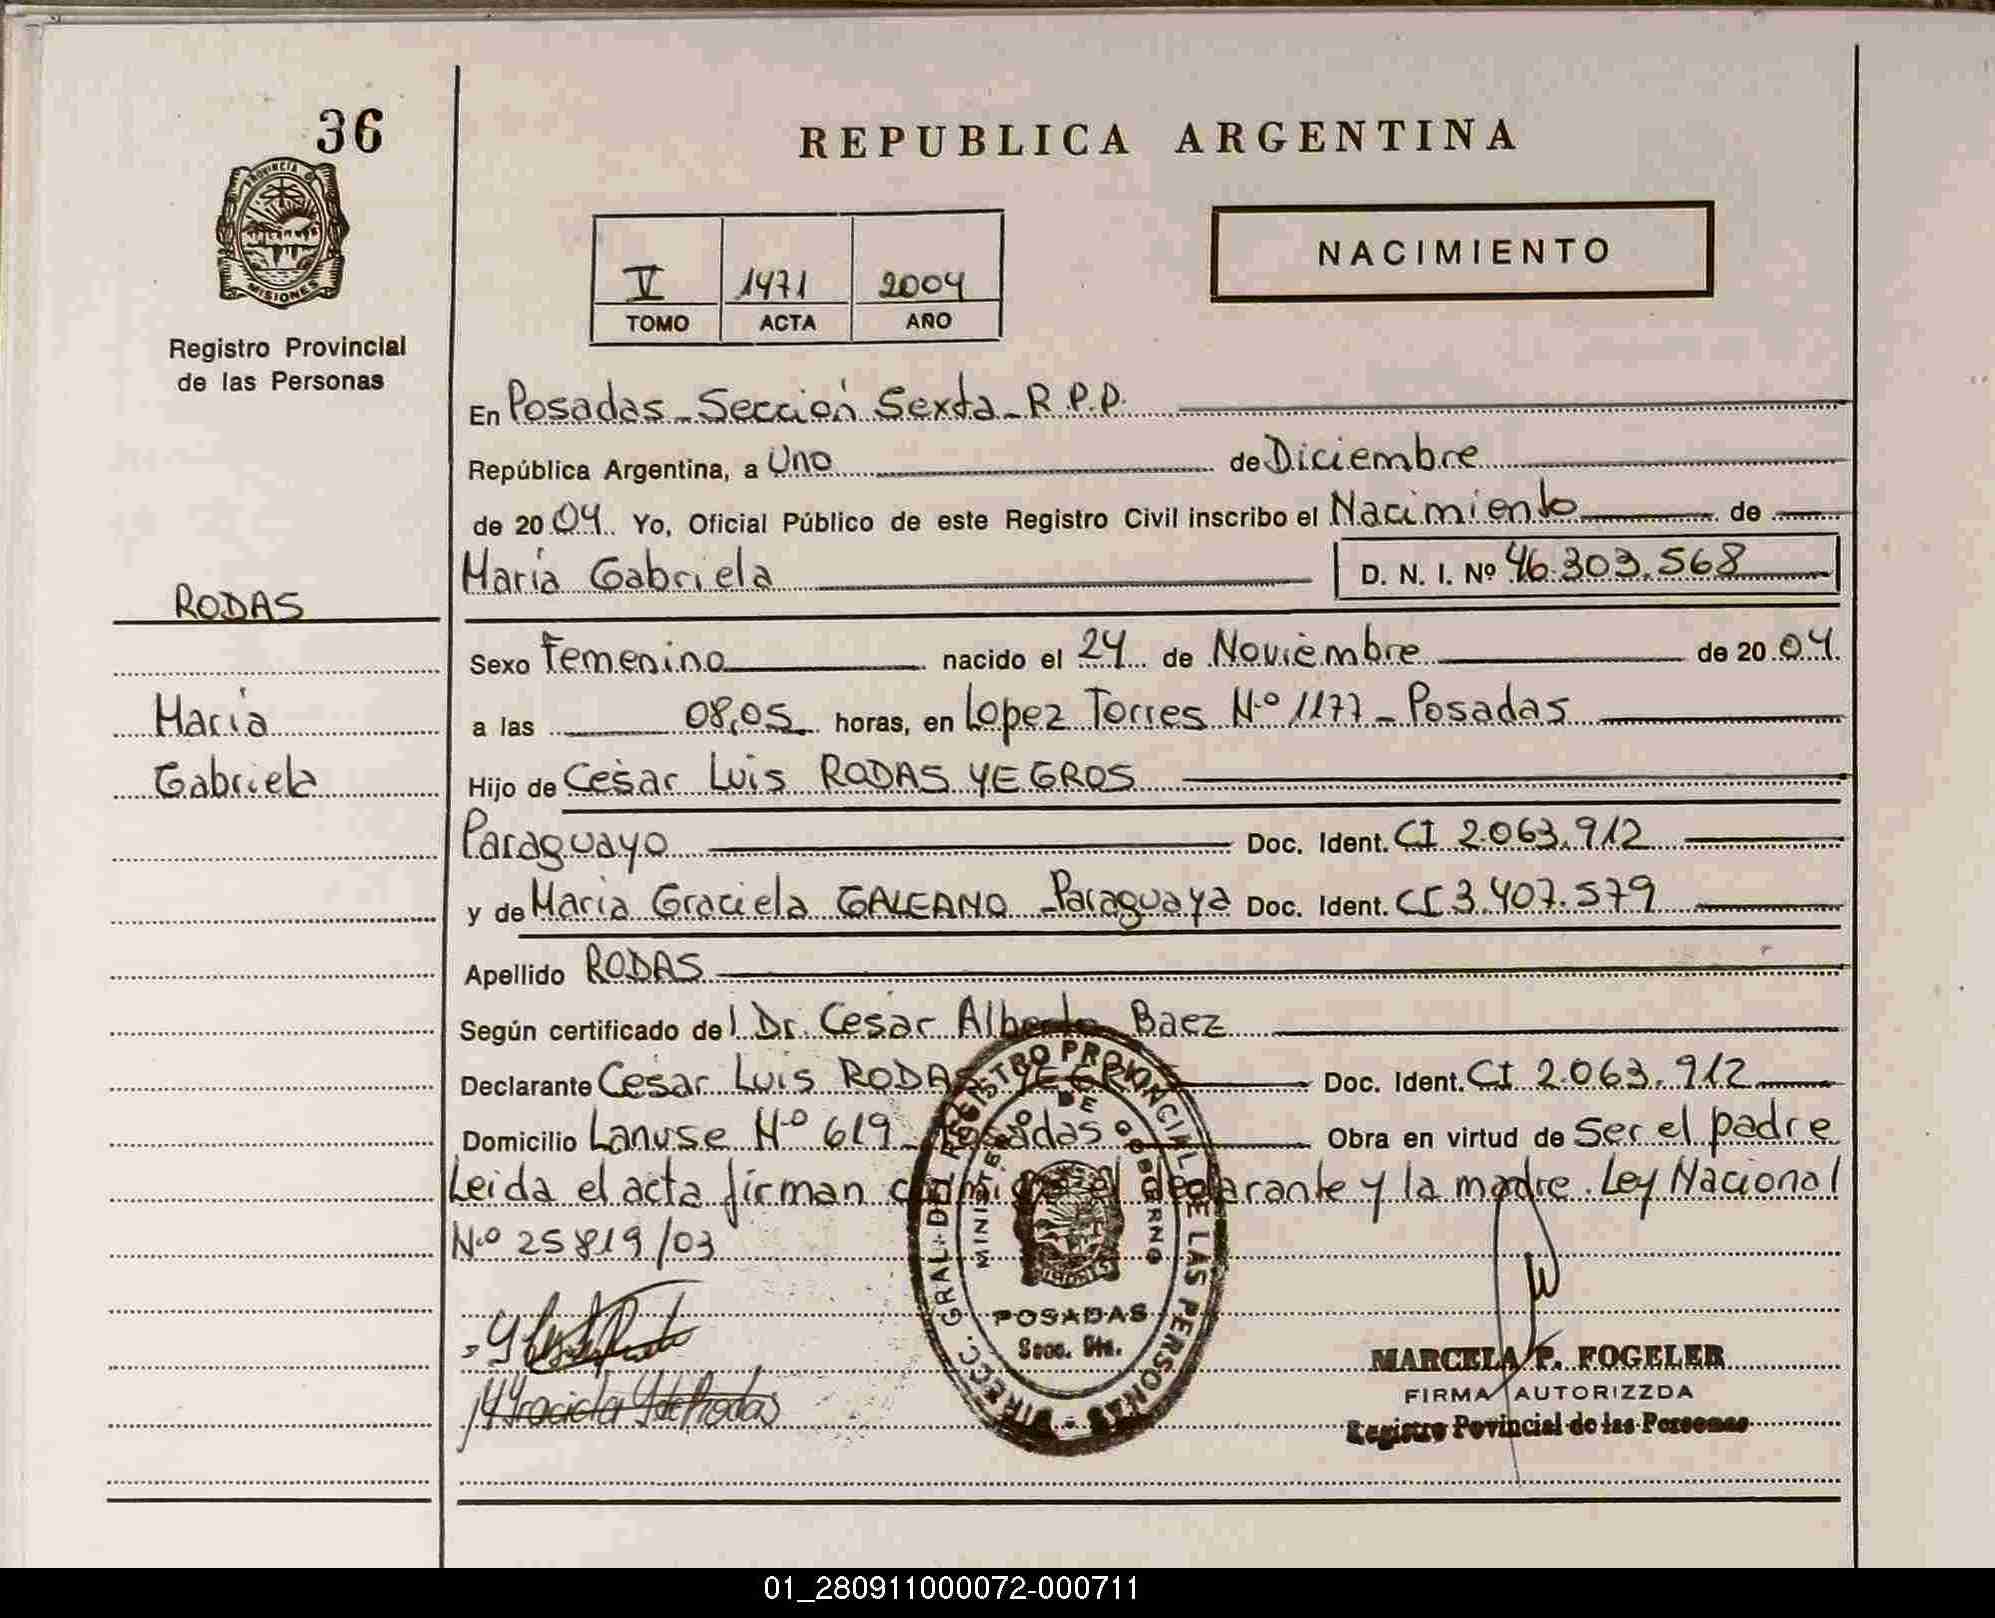 36
REPUBLICA ARGENTINA
PROVINCIA D
MISIONES
NACIMIENTO
V 1471 2004
TOMO ACTA AÑO
Registro Provincial
de las Personas
En Posadas - Sección Sexta - R.P.P.
República Argentina, a Uno de Diciembre
de 2004. Yo, Oficial Público de este Registro Civil inscribo el Nacimiento de
María Gabriela D. N. I. Nº 46.303.568
RODAS
Sexo Femenino nacido el 24 de Noviembre de 2004.
María
a las 08,05 horas, en Lopez Torres Nº 1177 - Posadas
Gabriela
Hijo de César Luis RODAS YEGROS
Paraguayo Doc. Ident. CI 2.063.912
y de María Graciela GALEANO - Paraguaya Doc. Ident. CI 3.407.579
Apellido RODAS
Según certificado del Dr. César Alberto Baez
Declarante César Luis RODAS Doc. Ident. CI 2.063.912
Domicilio Lanuse Nº 619 - Posadas Obra en virtud de Ser el padre
Leida el acta firman conmigo el declarante y la madre. Ley Nacional
Nº 25819/03
DIRECC. GRAL. DEL REGISTRO PROVINCIAL DE LAS PERSONAS
MINISTERIO DE GOBIERNO
POSADAS
Secc. 6ta.
MARCELA P. FOGELER
FIRMA AUTORIZZDA
Registro Povincial de las Personas
01_280911000072-000711